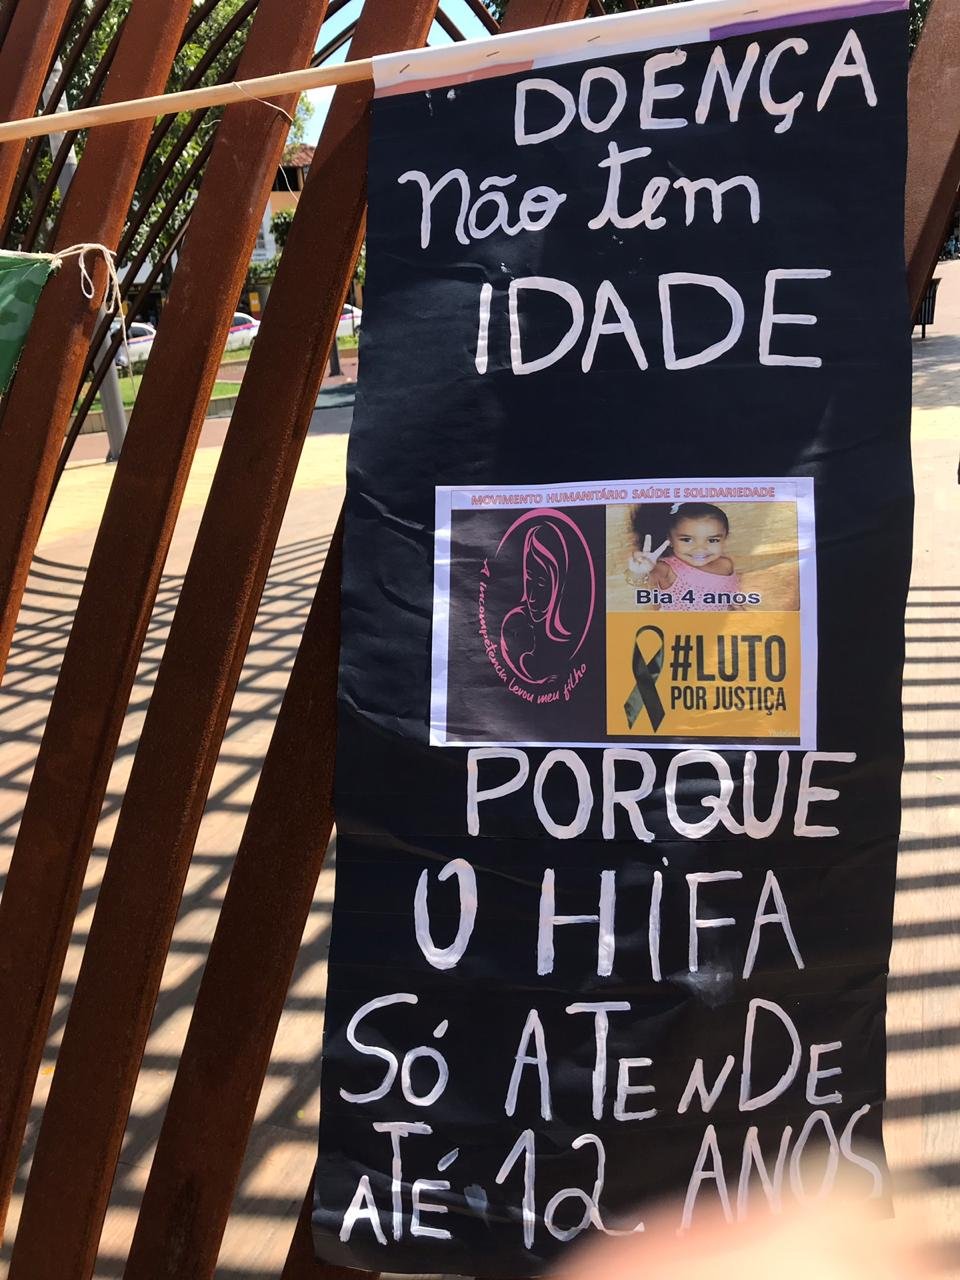 DOENÇA
Não tem
IDADE
MOVIMENTO HUMANITÁRIO SAÚDE E SOLIDARIEDADE
A incompetencia levou meu filho
Bia 4 anos
#LUTO
POR JUSTIÇA
PORQUE
O HIFA
SÓ ATENDE
ATÉ 12 ANOS